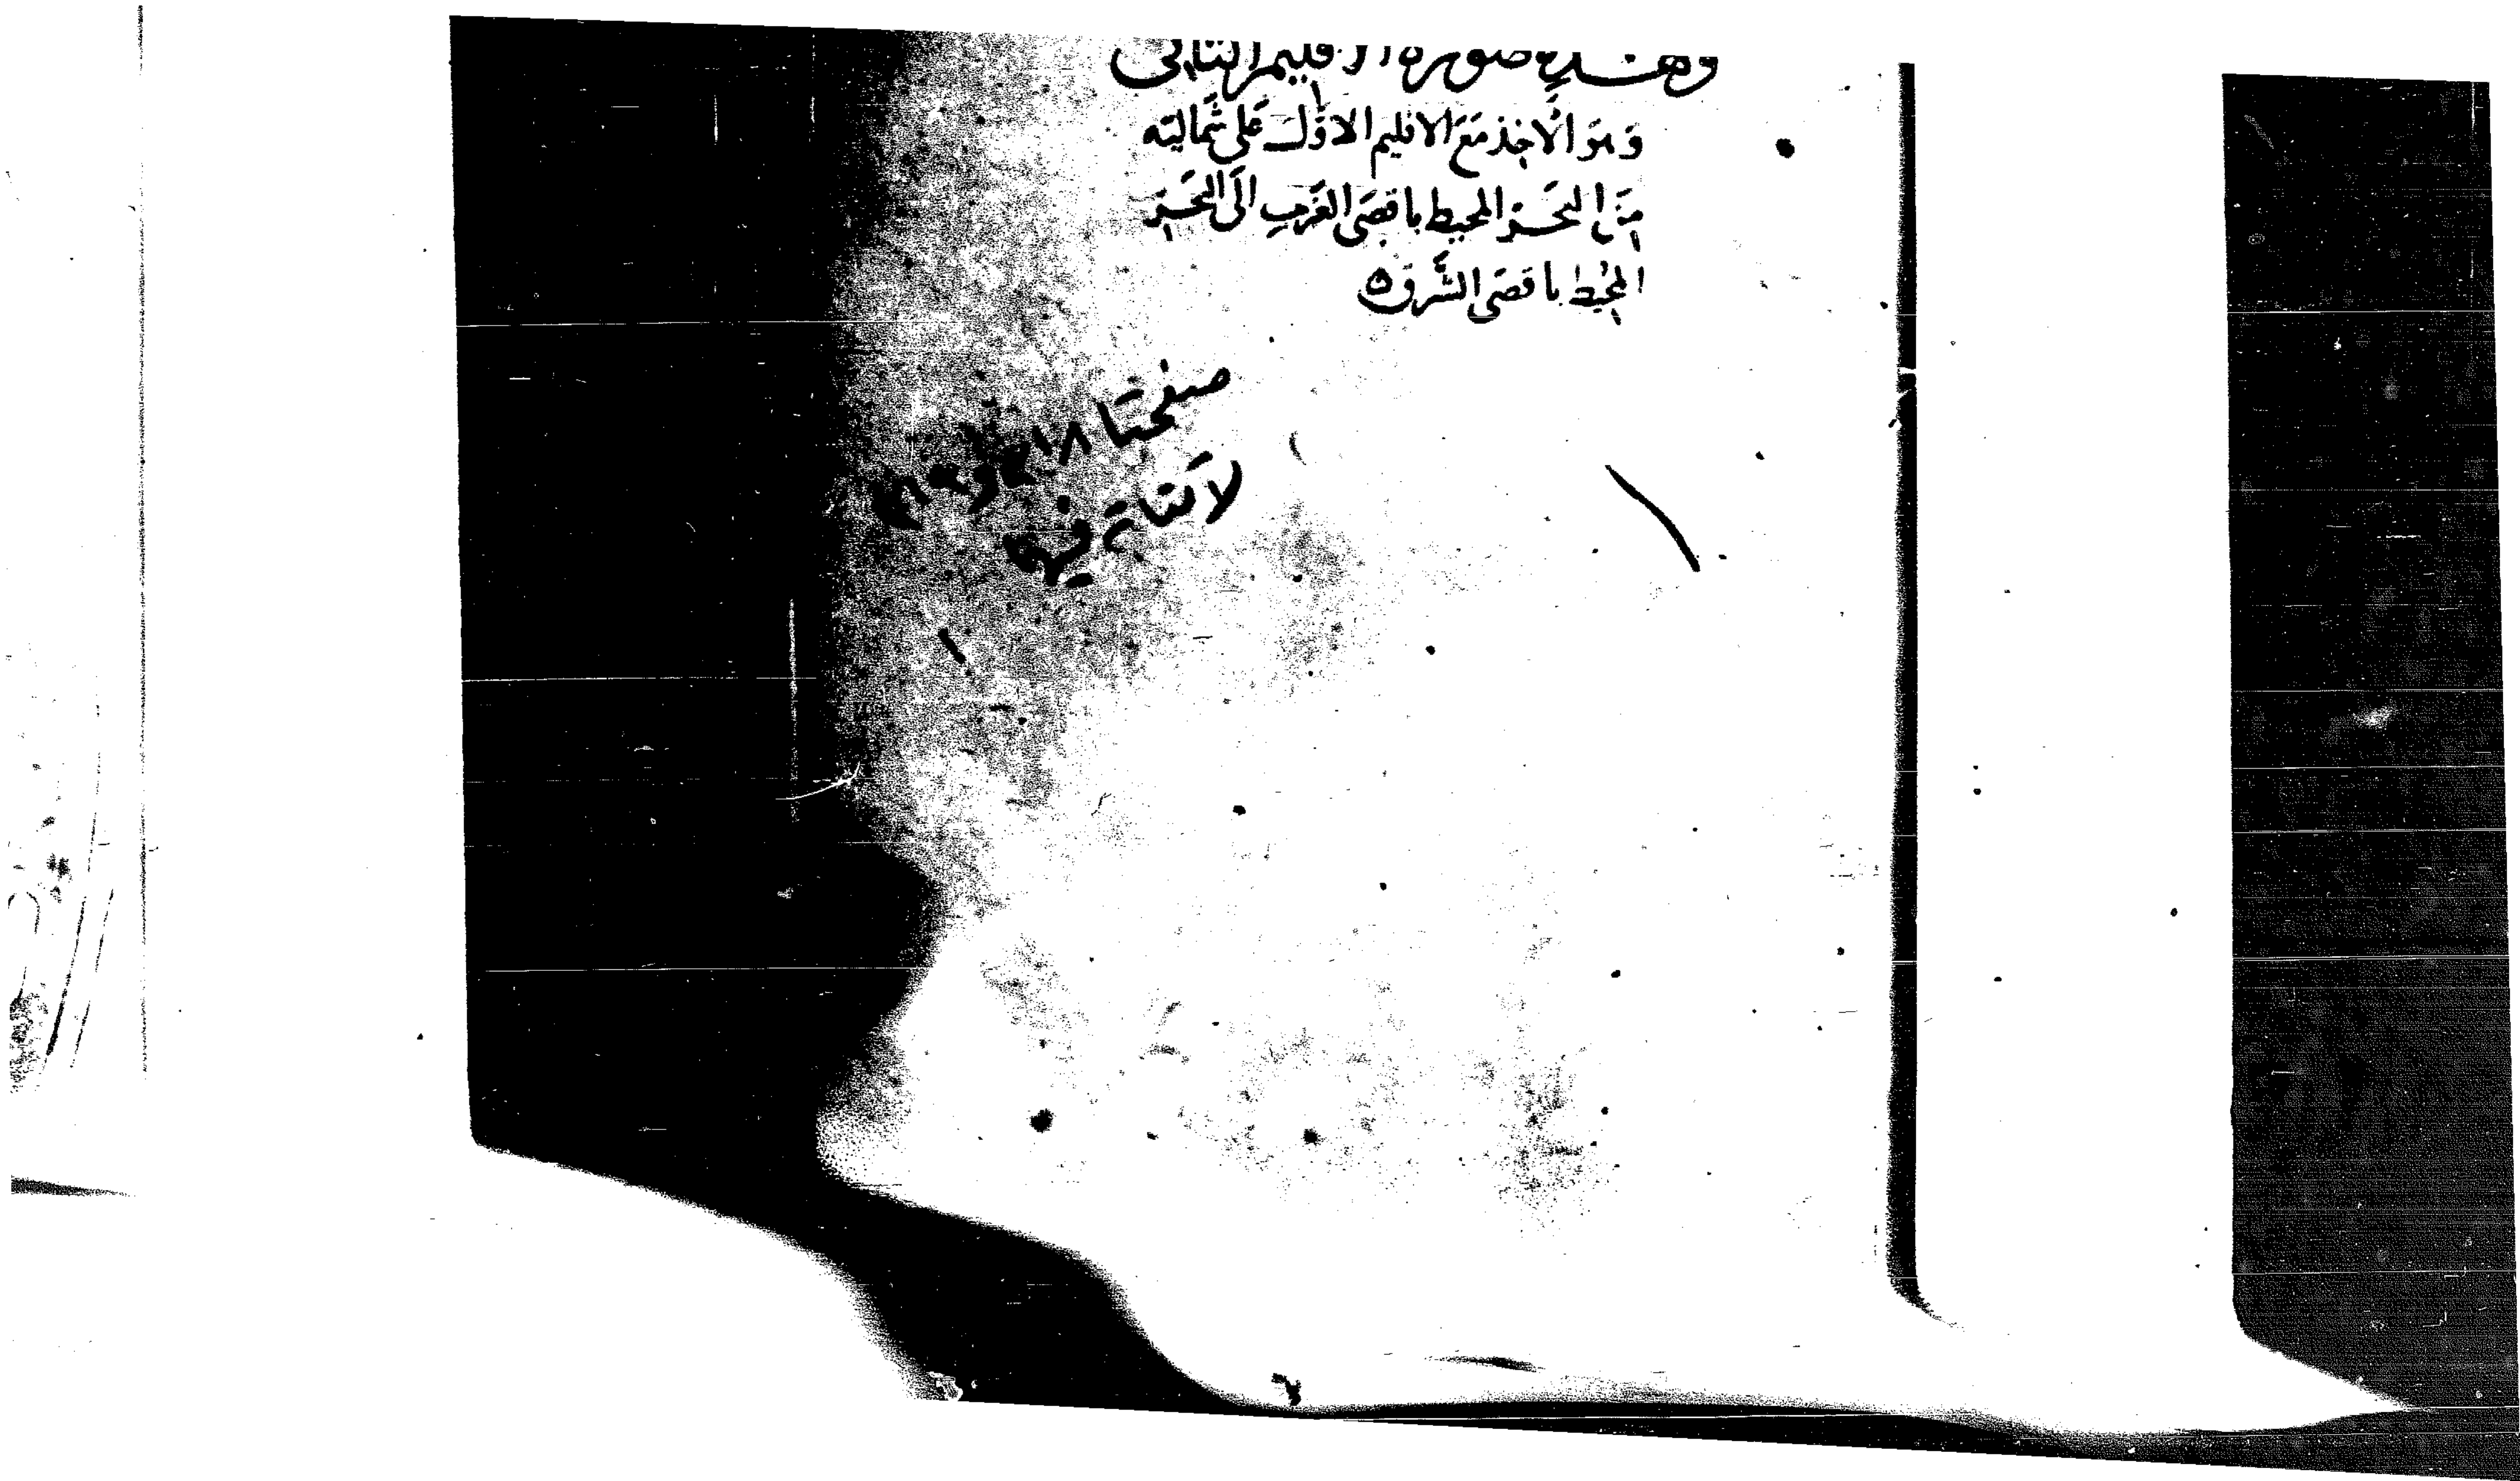 وهذه صورة الاقليم الثاني
وَهوَ الاخِذ مَعَ الاقليم الاوّل عَلى شَماليّه
مِنَ البَحْر المحيط باقصَى الغَرب الَى البَحْر
المحيط باقصَى الشّرق ه
صفحتا ٢١٨ و ٢١٩
لا كتابة فيها